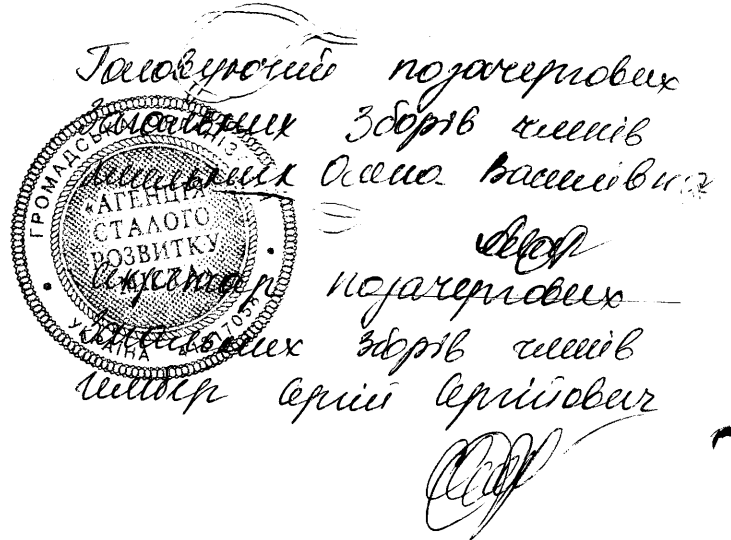 Головуючий позачергових
Загальних Зборів членів
Олена Василівна
Секретар позачергових
Загальних Зборів членів
Сергій Сергійович
ГРОМАДСЬКА
«АГЕНЦІЯ
СТАЛОГО
РОЗВИТКУ
УКРАЇНА